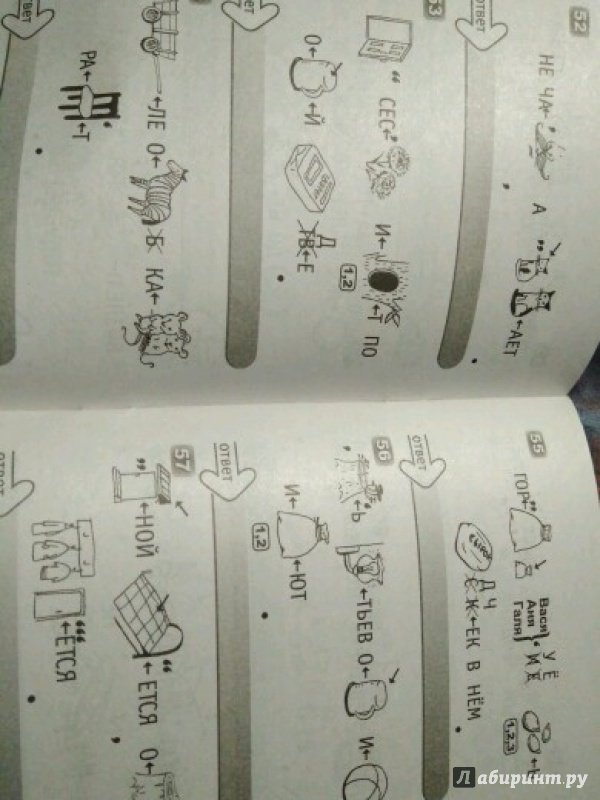 52
НЕ ЧА
А
АЕТ
ответ
53
СЕС
И
1,2
Т ПО
О
Й
ТВ Д Е
ответ
ЛЕ О
Б КА
РА
Т
ответ
55
ГОР
Вася
Аня
Галя
У Ё
И Е
1,2,3
Д Ч
Ё К ЕК В НЁМ
ответ
56
Ь
ТЬЕВ О
И
И
ЮТ
1,2
ответ
57
НОЙ
ЕТСЯ О
ЕТСЯ
ответ
Лабиринт.ру